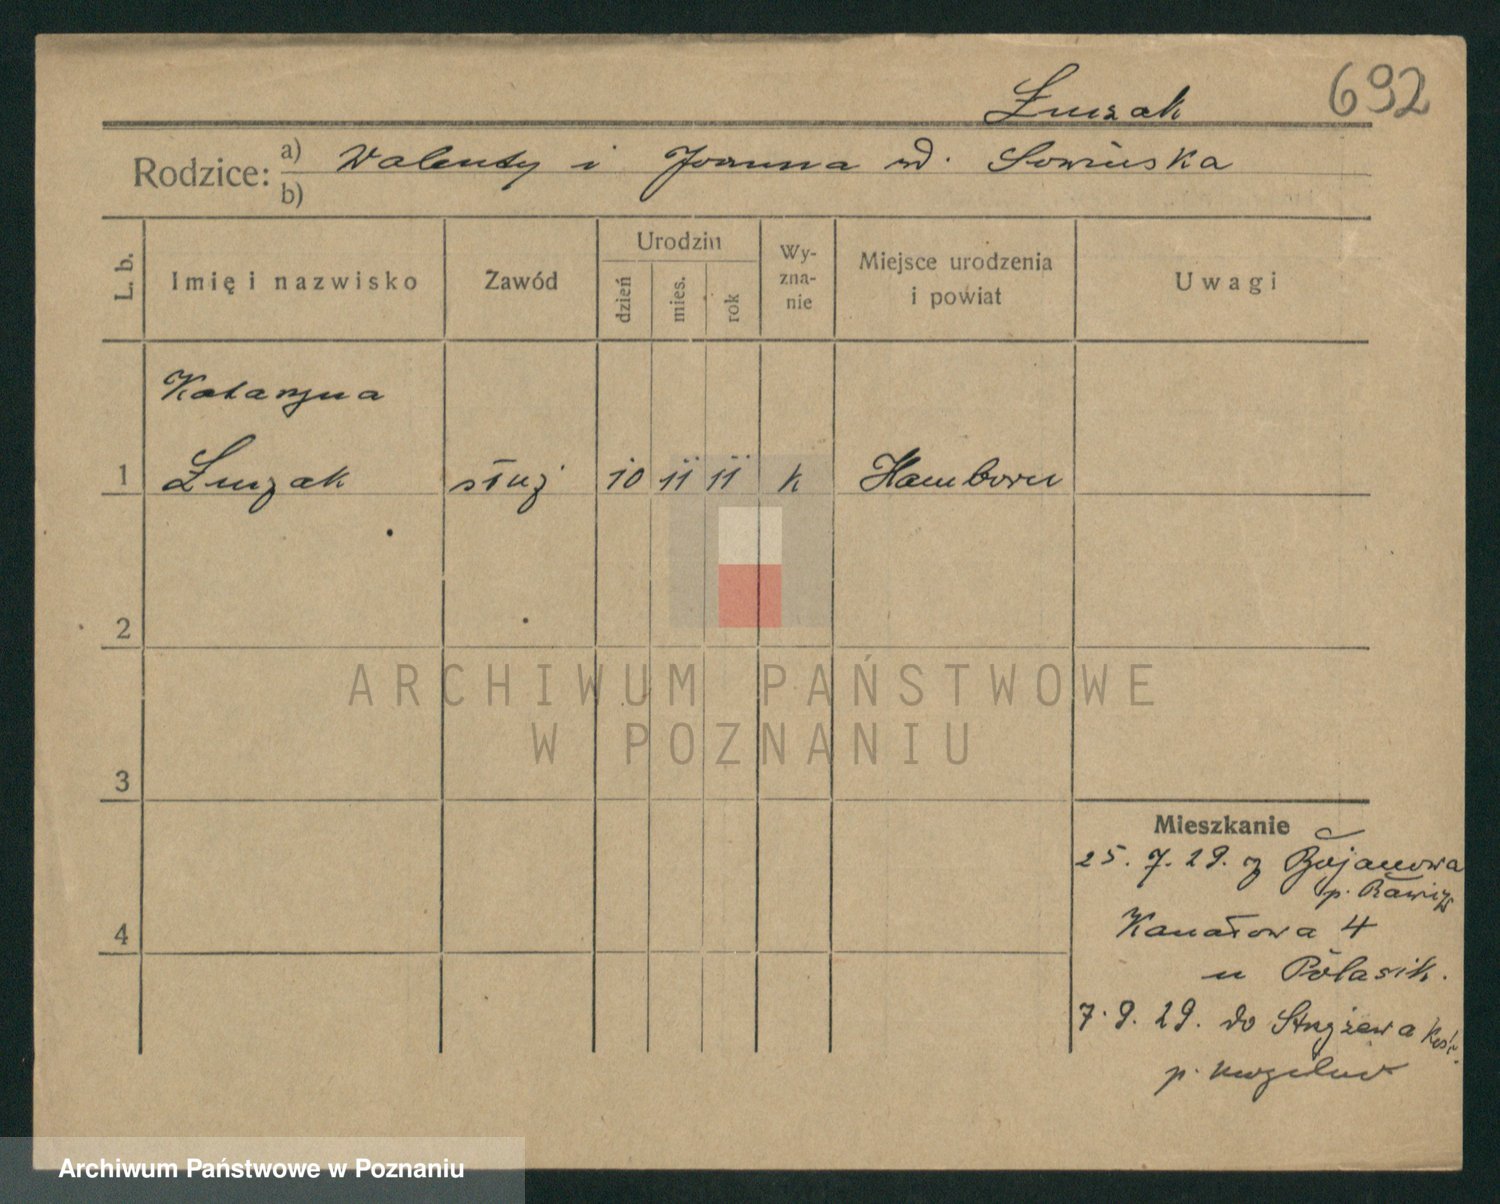 692
Żurzak
Rodzice: a) Walenty i Joanna rd. Sowińska
b)
L. b.
Imię i nazwisko
Zawód
Urodzin
dzień
mies.
rok
Wy-
zna-
nie
Miejsce urodzenia
i powiat
Uwagi
Katarzyna
1 służ 10 11 11 k Hamborn
2
3
4
ARCHIWUM PAŃSTWOWE
W POZNANIU
Mieszkanie
25. 7. 29. z Bojanowa
p. Rawicz
Kanałowa 4
u Polasik.
7. 9. 29. do
p.
Archiwum Państwowe w Poznaniu